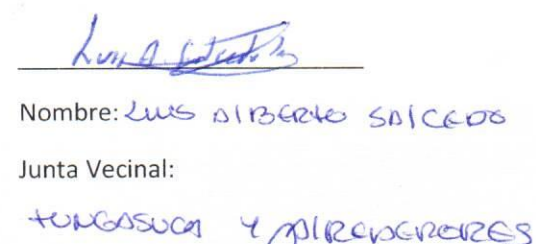 Nombre: LUIS AlBERTO SAlCEDO
Junta Vecinal:
TUNGASUCA Y AlREDEDORES